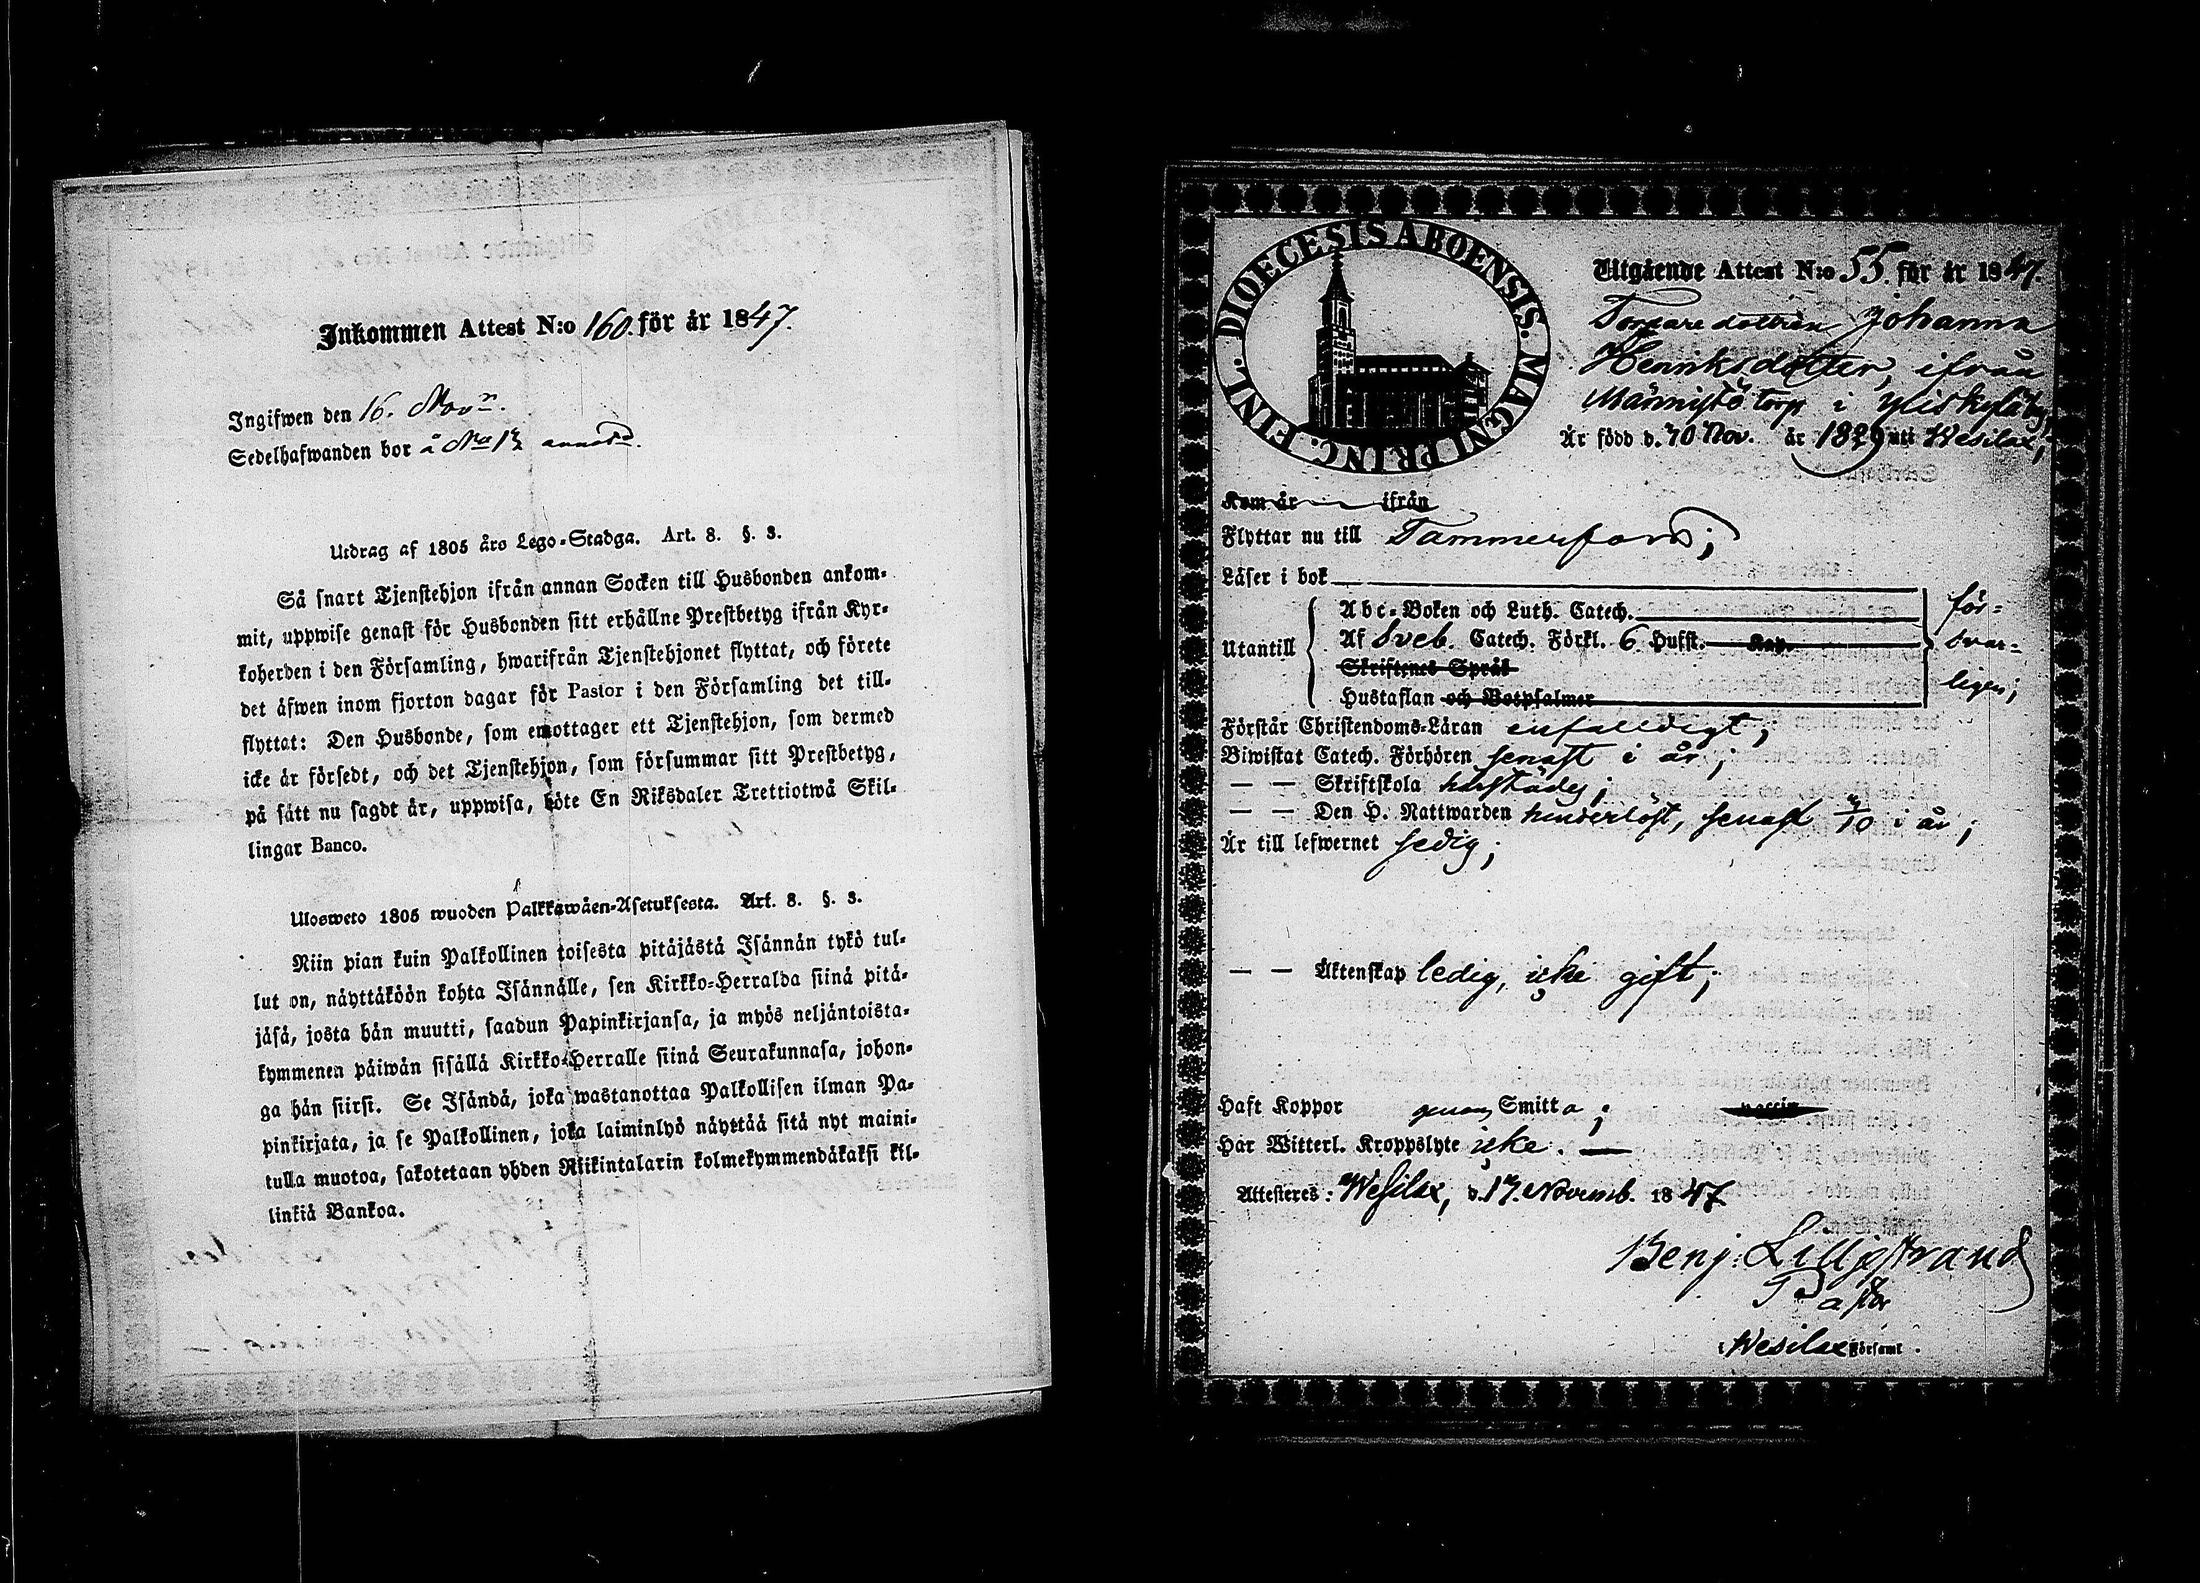 Inkommen Attest N:o 160. för år 1847.
Ingifwen den 16. Novr.
Sedelhafwanden bor å No 13
Utdrag af 1805 års Lego-Stadga. Art. 8. §. 3.
Så snart Tjenstehjon ifrån annan Socken till Husbonden ankom-
mit, uppwise genast för Husbonden sitt erhållne Prestbetyg ifrån Kyr-
koherden i den Församling, hwarifrån Tjenstehjonet flyttat, och förete
det äfwen inom fjorton dagar för Pastor i den Församling det till-
flyttat: Den Husbonde, som emottager ett Tjenstehjon, som dermed
icke är försedt, och det Tjenstehjon, som försummar sitt Prestbetyg,
på sätt nu sagdt är, uppwisa, böte En Riksdaler Trettiotwå Skil-
lingar Banco.
Ulosweto 1805 wuoden Palkkawäen-Asetuksesta. Art. 8. §. 3.
Niin pian kuin Palkollinen toisesta pitäjästä Isännän tykö tul-
lut on, näyttäköön kohta Isännälle, sen Kirkko-Herralda siinä pitä-
jäsä, josta hän muutti, saadun Papinkirjansa, ja myös neljäntoista-
kymmenen päiwän sisällä Kirkko-Herralle siinä Seurakunnasa, johon-
ga hän siirsi. Se Isändä, joka wastanottaa Palkollisen ilman Pa-
pinkirjata, ja se Palkollinen, joka laiminlyö näyttää sitä nyt maini-
tulla muotoa, sakotetaan yhden Riikintalarin kolmekymmendäkaksi kil-
linkiä Bankoa.
DIOECESIS ABOENSIS. MAGNI PRINC. FINL.
Utgående Attest N:o 55. för år 1847.
Torpare dottren Johanna
Henriksdotter, ifrån
Männistö torp i Yliskylä by,
Är född d. 10 Nov. år 1829 uti Wesilax;
Kom år ifrån
Flyttar nu till Tammerfors;
Läser i bok
Utantill
Abc-Boken och Luth. Catech.
Af Sveb. Catech. Förkl. 6 Hufst. Kap.
Skriftenes Språk
Hustaflan och Botpsalmer
för-
svar-
ligen;
Förstår Christendoms-Läran enfalldigt;
Biwistat Catech. Förhören senast i år;
— — Skriftskola härstädes;
— — Den H. Nattwarden hinderlöst, senast 3/10 i år;
Är till lefwernet sedig;
— — Äktenskap ledig, icke gift;
Haft Koppor genom Smitta;
Har Witterl. Kroppslyte icke. —
Attesteres: Wesilax, d. 17. Novemb. 1847
Benj: Lilljestrand
Pastor
i Wesilax Församl.